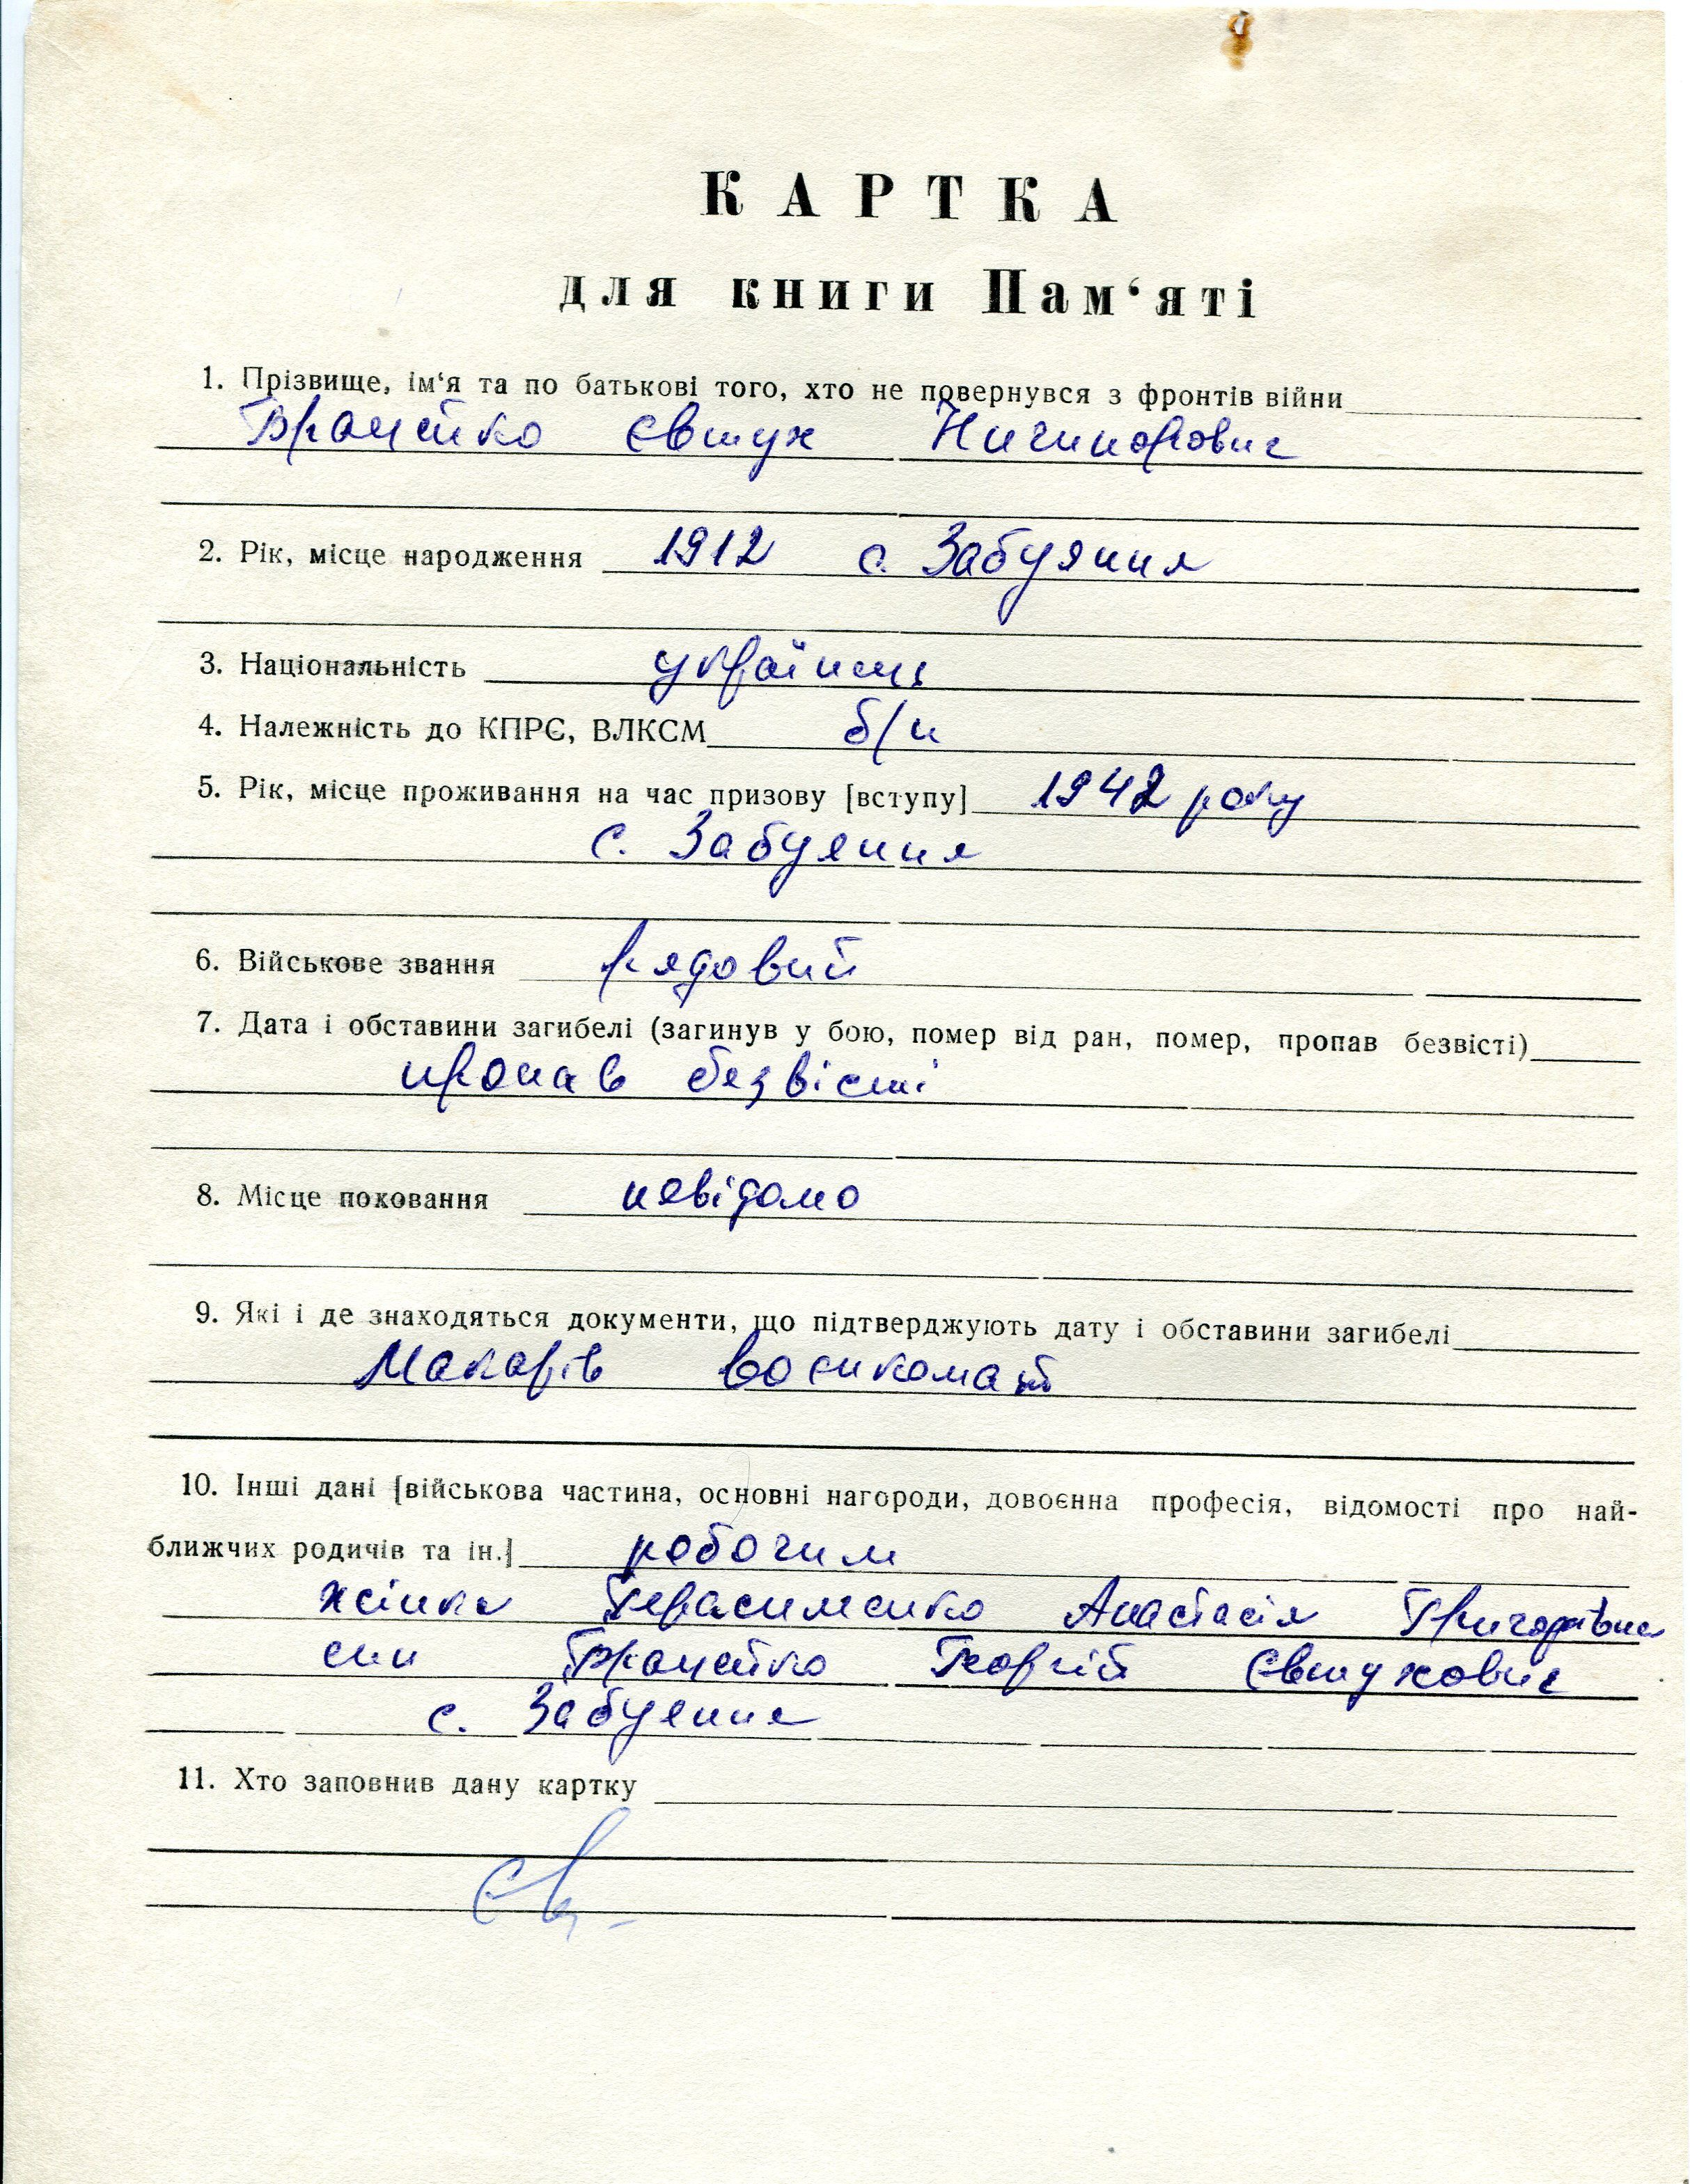 КАРТКА
для книги Пам‘яті
1. Прізвище, ім‘я та по батькові того, хто не повернувся з фронтів війни
Євтух Ничипорович
2. Рік, місце народження 1912 с. Забуяння
3. Національність українець
4. Належність до КПРЄ, ВЛКСМ б/п
5. Рік, місце проживання на час призову [вступу] 1942 року
с. Забуяння
6. Військове звання рядовий
7. Дата і обставини загибелі (загинув у бою, помер від ран, помер, пропав безвісті)
пропав безвісті
8. Місце поховання невідомо
9. Які і де знаходяться документи, що підтверджують дату і обставини загибелі
Макарів воєнкомат
10. Інші дані [військова частина, основні нагороди, довоєнна професія, відомості про най-
ближчих родичів та ін.] робочим
жінка Герасименко Анастасія Григорівна
син Георгій Євтухович
с. Забуяння
11. Хто заповнив дану картку